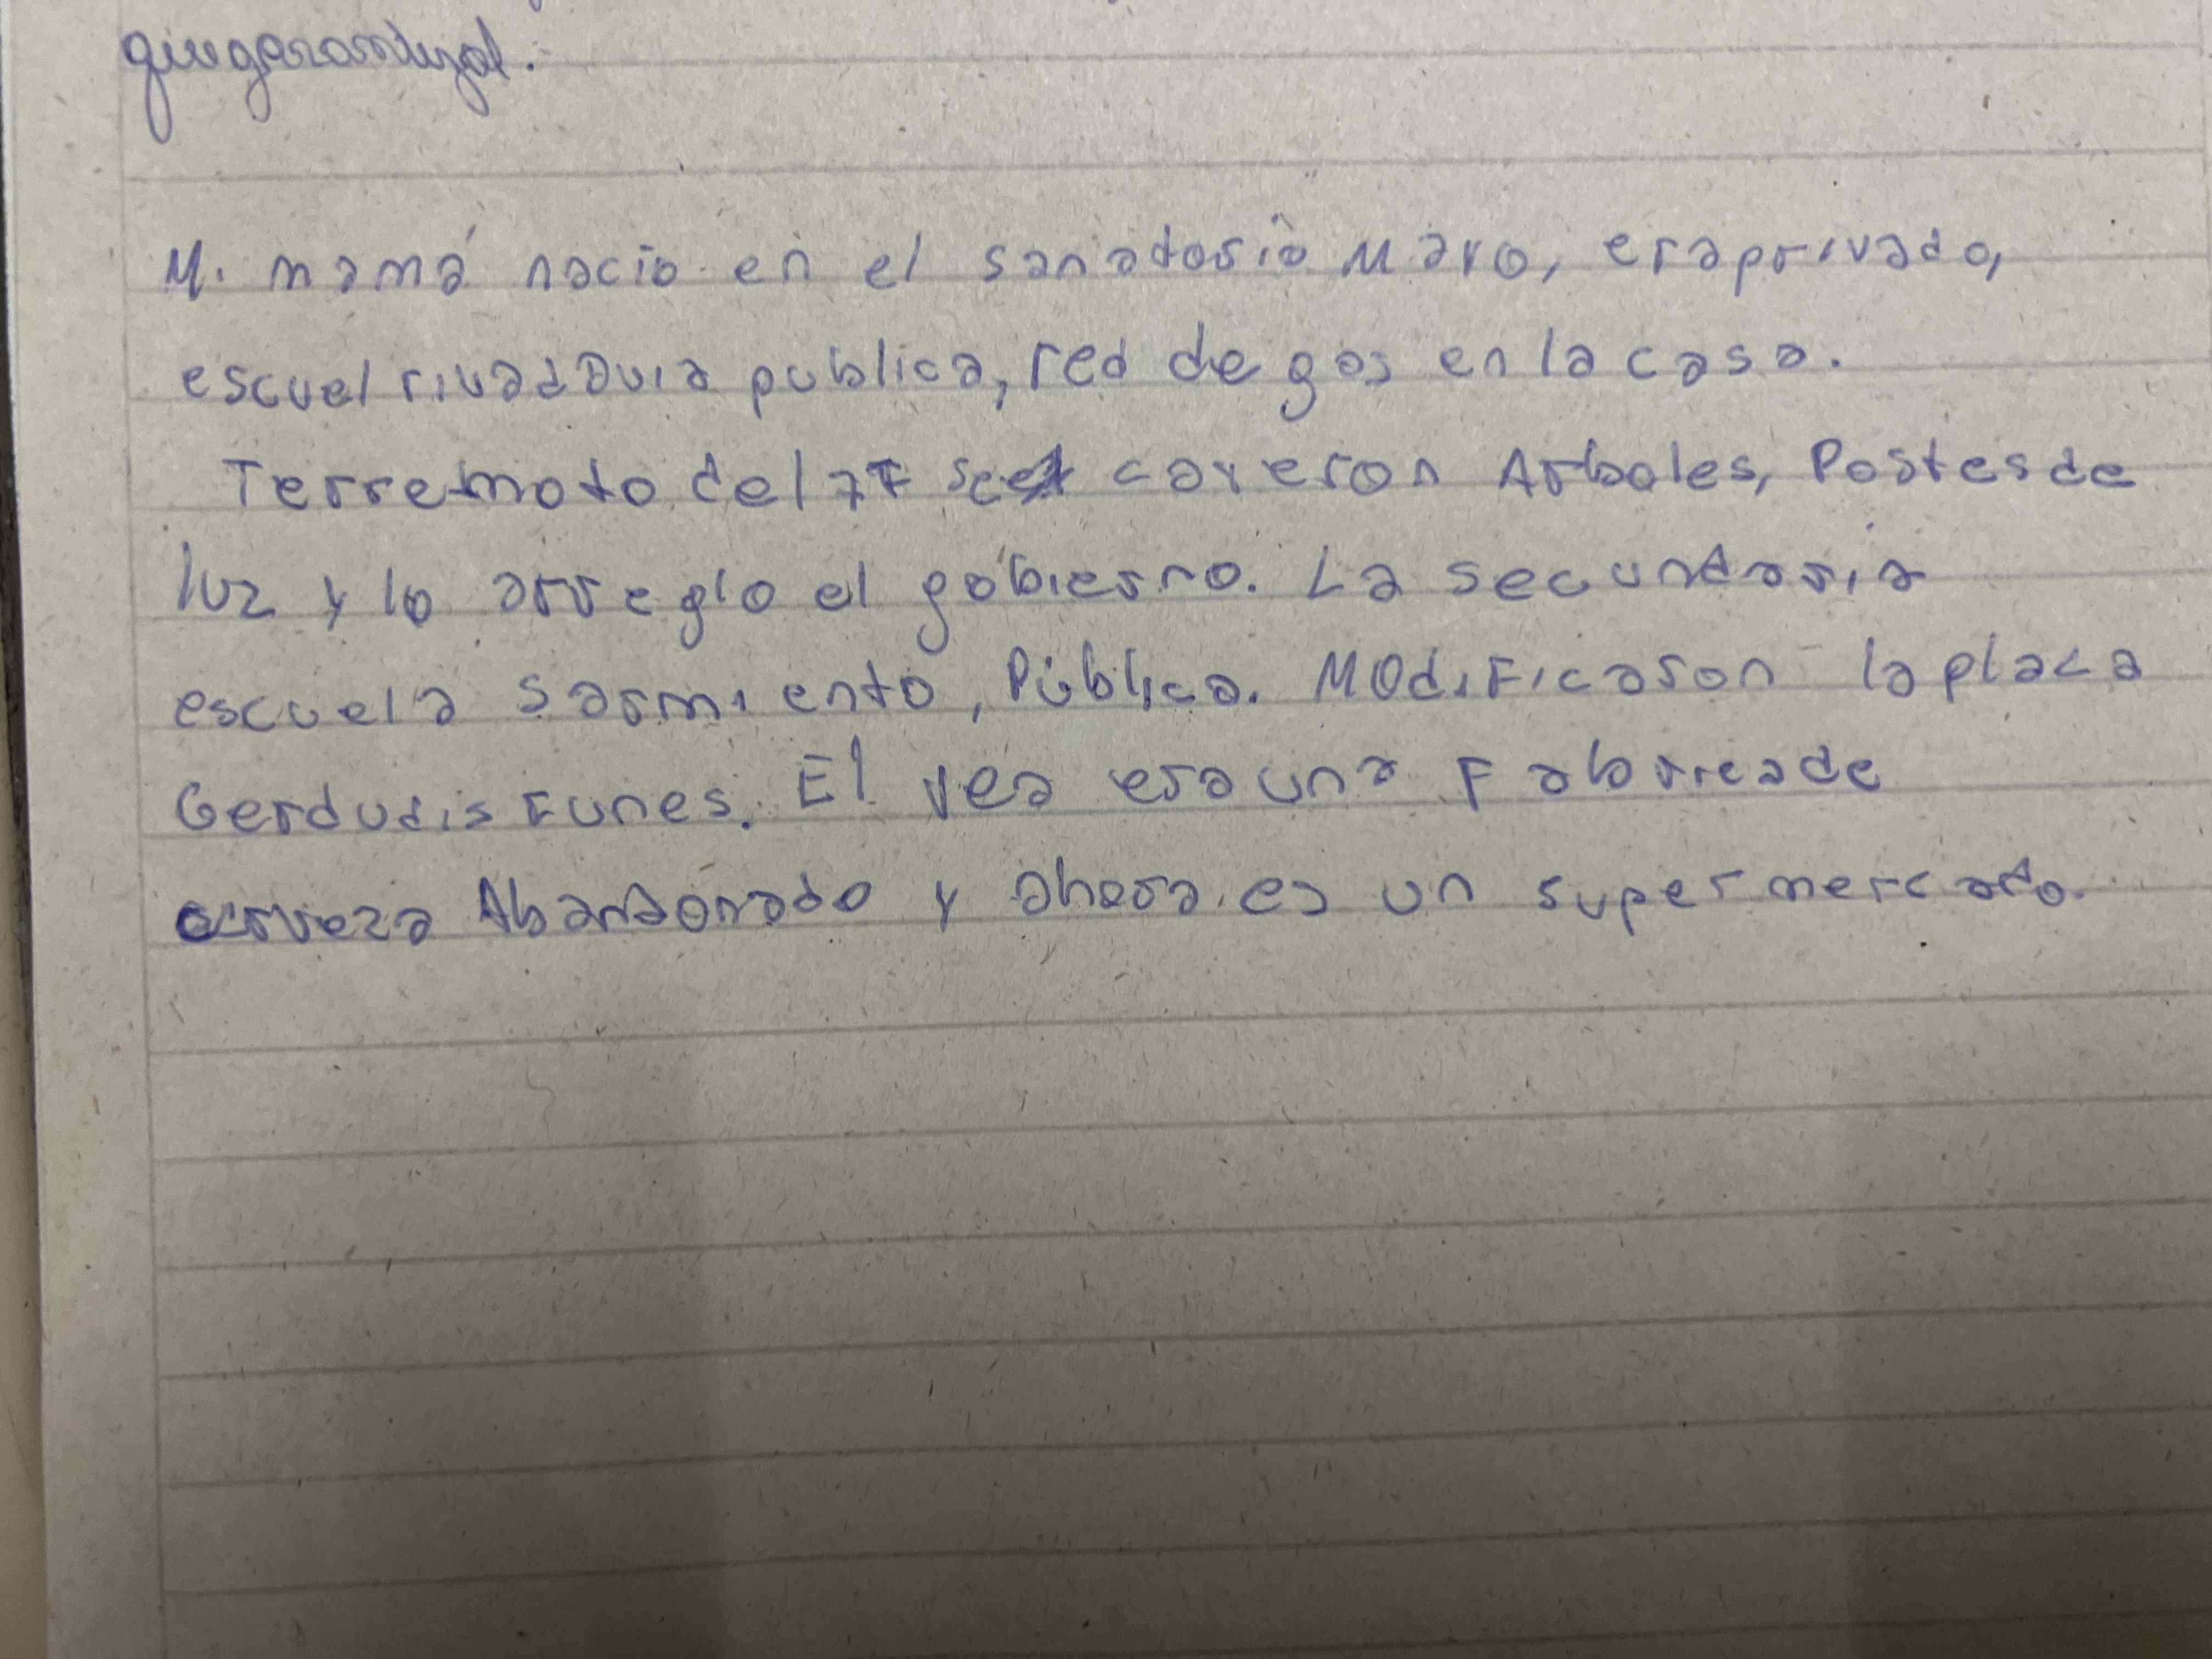 Mi mamá nacio en el sanatorio Mayo, eraprivado,
escuel rivadavia publica, red de gas en la casa.
Terremoto del 77 se cayeron Arboles, Postes de
luz y lo arreglo el gobierno. La secundaria
escuela sarmiento, Pública. MOdificaron la plaza
Gerdudis Funes. El vea era una Fabrica de
cerveza Abandonado y ahora es un supermercado.